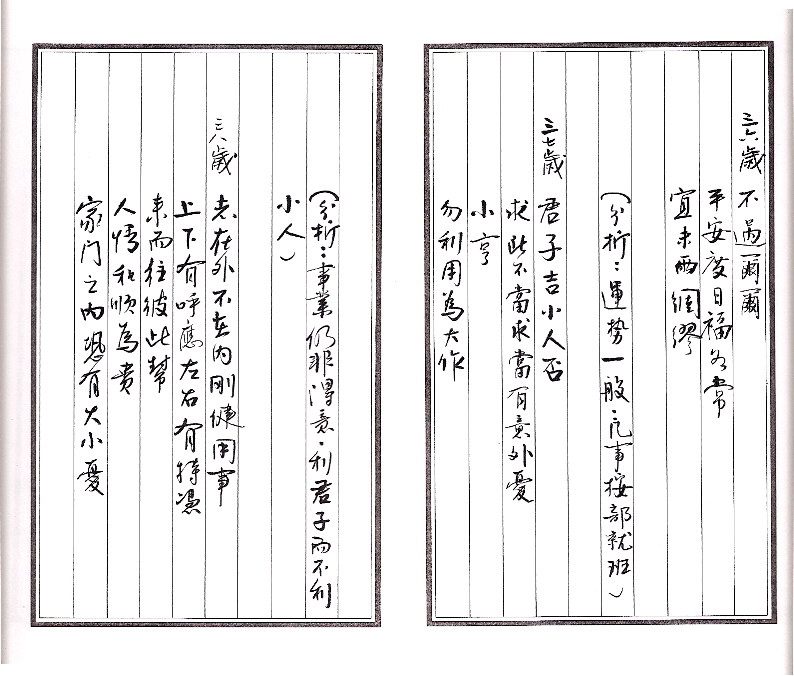 三六歲 不過爾爾
平安度日福常
宜未雨綢繆
(分析：運勢一般，凡事按部就班)
三七歲 君子吉小人否
求此不當求當有意外憂
小亨
勿利用為大作
(分析：事業仍非得意，利君子而不利
小人)
三八歲 志在外不在內剛健用事
上下有呼應左右有持憑
來而往彼此幫
人情和順為貴
家門之內恐有大小憂